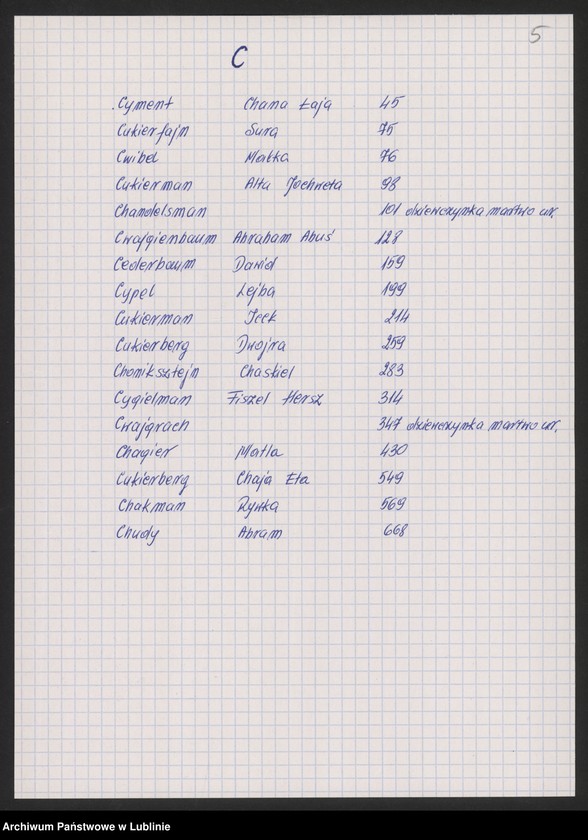 5
C
Cyment Chana Łaja 45
Cukierfajn Sura 75
Cwibel Malka 76
Cukierman Alta Jochweta 98
Chandelsman 101 dziewczynka martwo ur.
Cwajgienbaum Abraham Abuś 128
Cederbaum Dawid 159
Cypel Lejba 199
Cukierman Icek 214
Cukierberg Dwojra 259
Choniksztejn Chaskiel 283
Cygielman Fiszel Hersz 314
Cwajgrach 347 dziewczynka martwo ur.
Chagier Matla 430
Cukierberg Chaja Eta 549
Chakman Rywka 569
Chudy Abram 668
Archiwum Państwowe w Lublinie